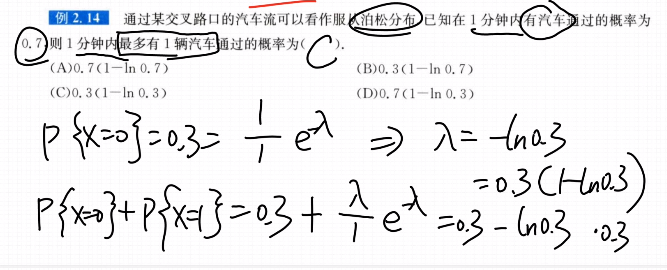 例 2.14 通过某交叉路口的汽车流可以看作服从泊松分布,已知在 1 分钟内有汽车通过的概率为
0.7,则 1 分钟内最多有 1 辆汽车通过的概率为( C ).
(A)0.7(1-ln 0.7) (B)0.3(1-ln 0.7)
(C)0.3(1-ln 0.3) (D)0.7(1-ln 0.3)
P{X=0}=0.3= 1/1 e^λ ⇒ λ=-ln0.3
=0.3(1-ln0.3)
P{X=0}+P{X=1}=0.3+ λ/1 e^λ =0.3-ln0.3 ·0.3